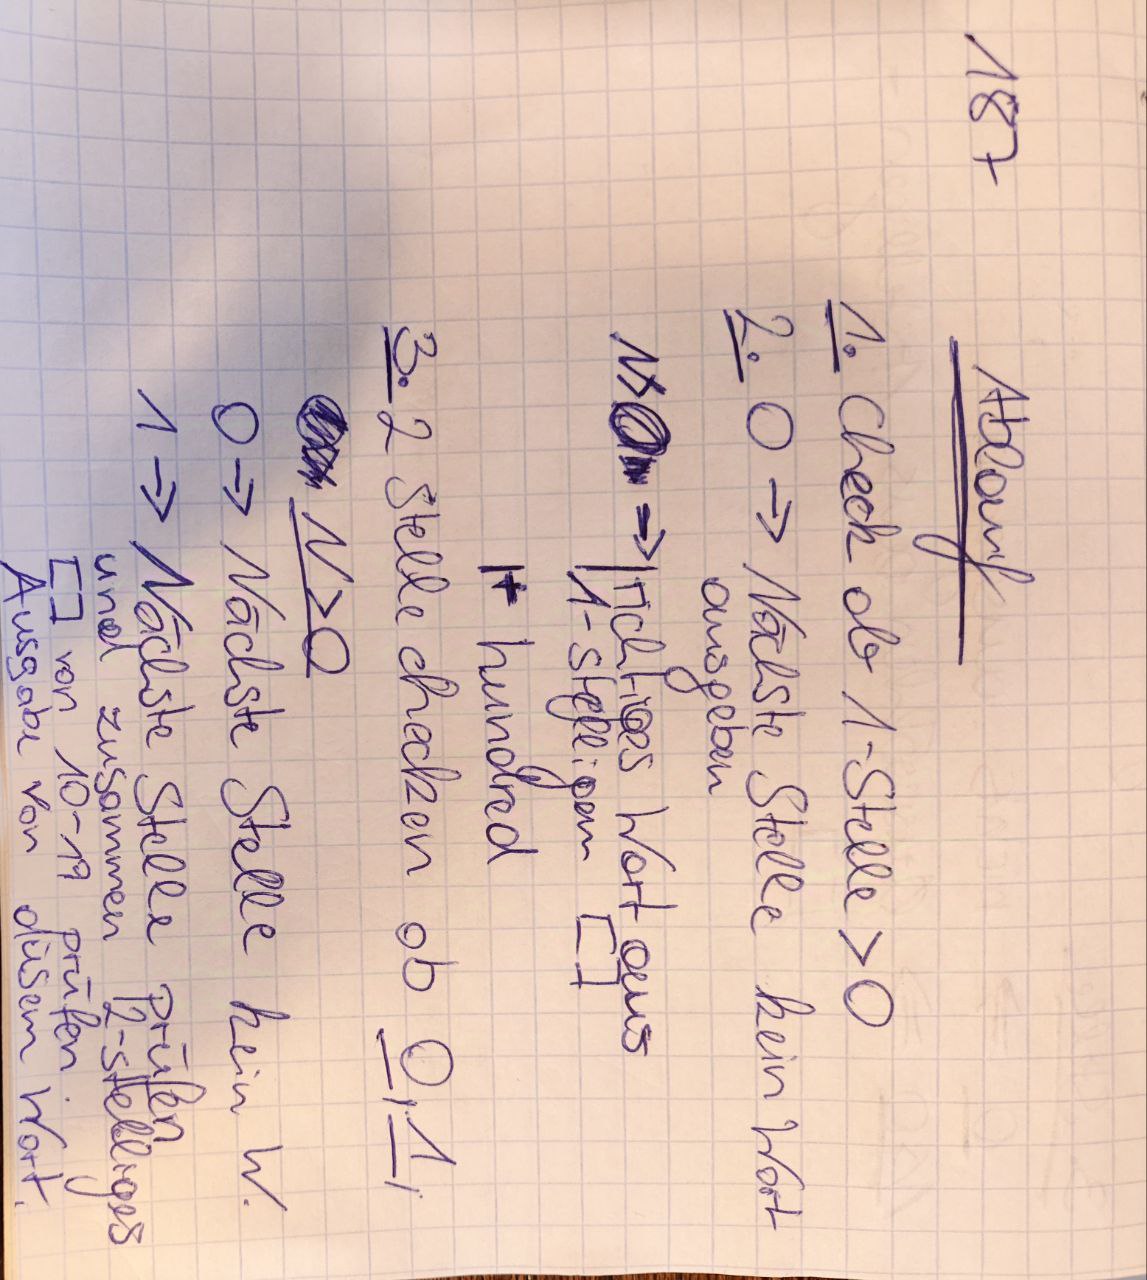 187 Ablauf
1. Check ob 1-Stelle > 0
2. 0 → Nächste Stelle kein Wort
ausgeben
N> → richtiges Wort aus
1-stelligem []
+ hundred
3. 2 Stelle checken ob 0, 1,
N>0
0 → Nächste Stelle kein W.
1 → Nächste Stelle prüfen
und zusammen 2-stelliges
[] von 10-19 prüfen.
Ausgabe von diesem Wort.